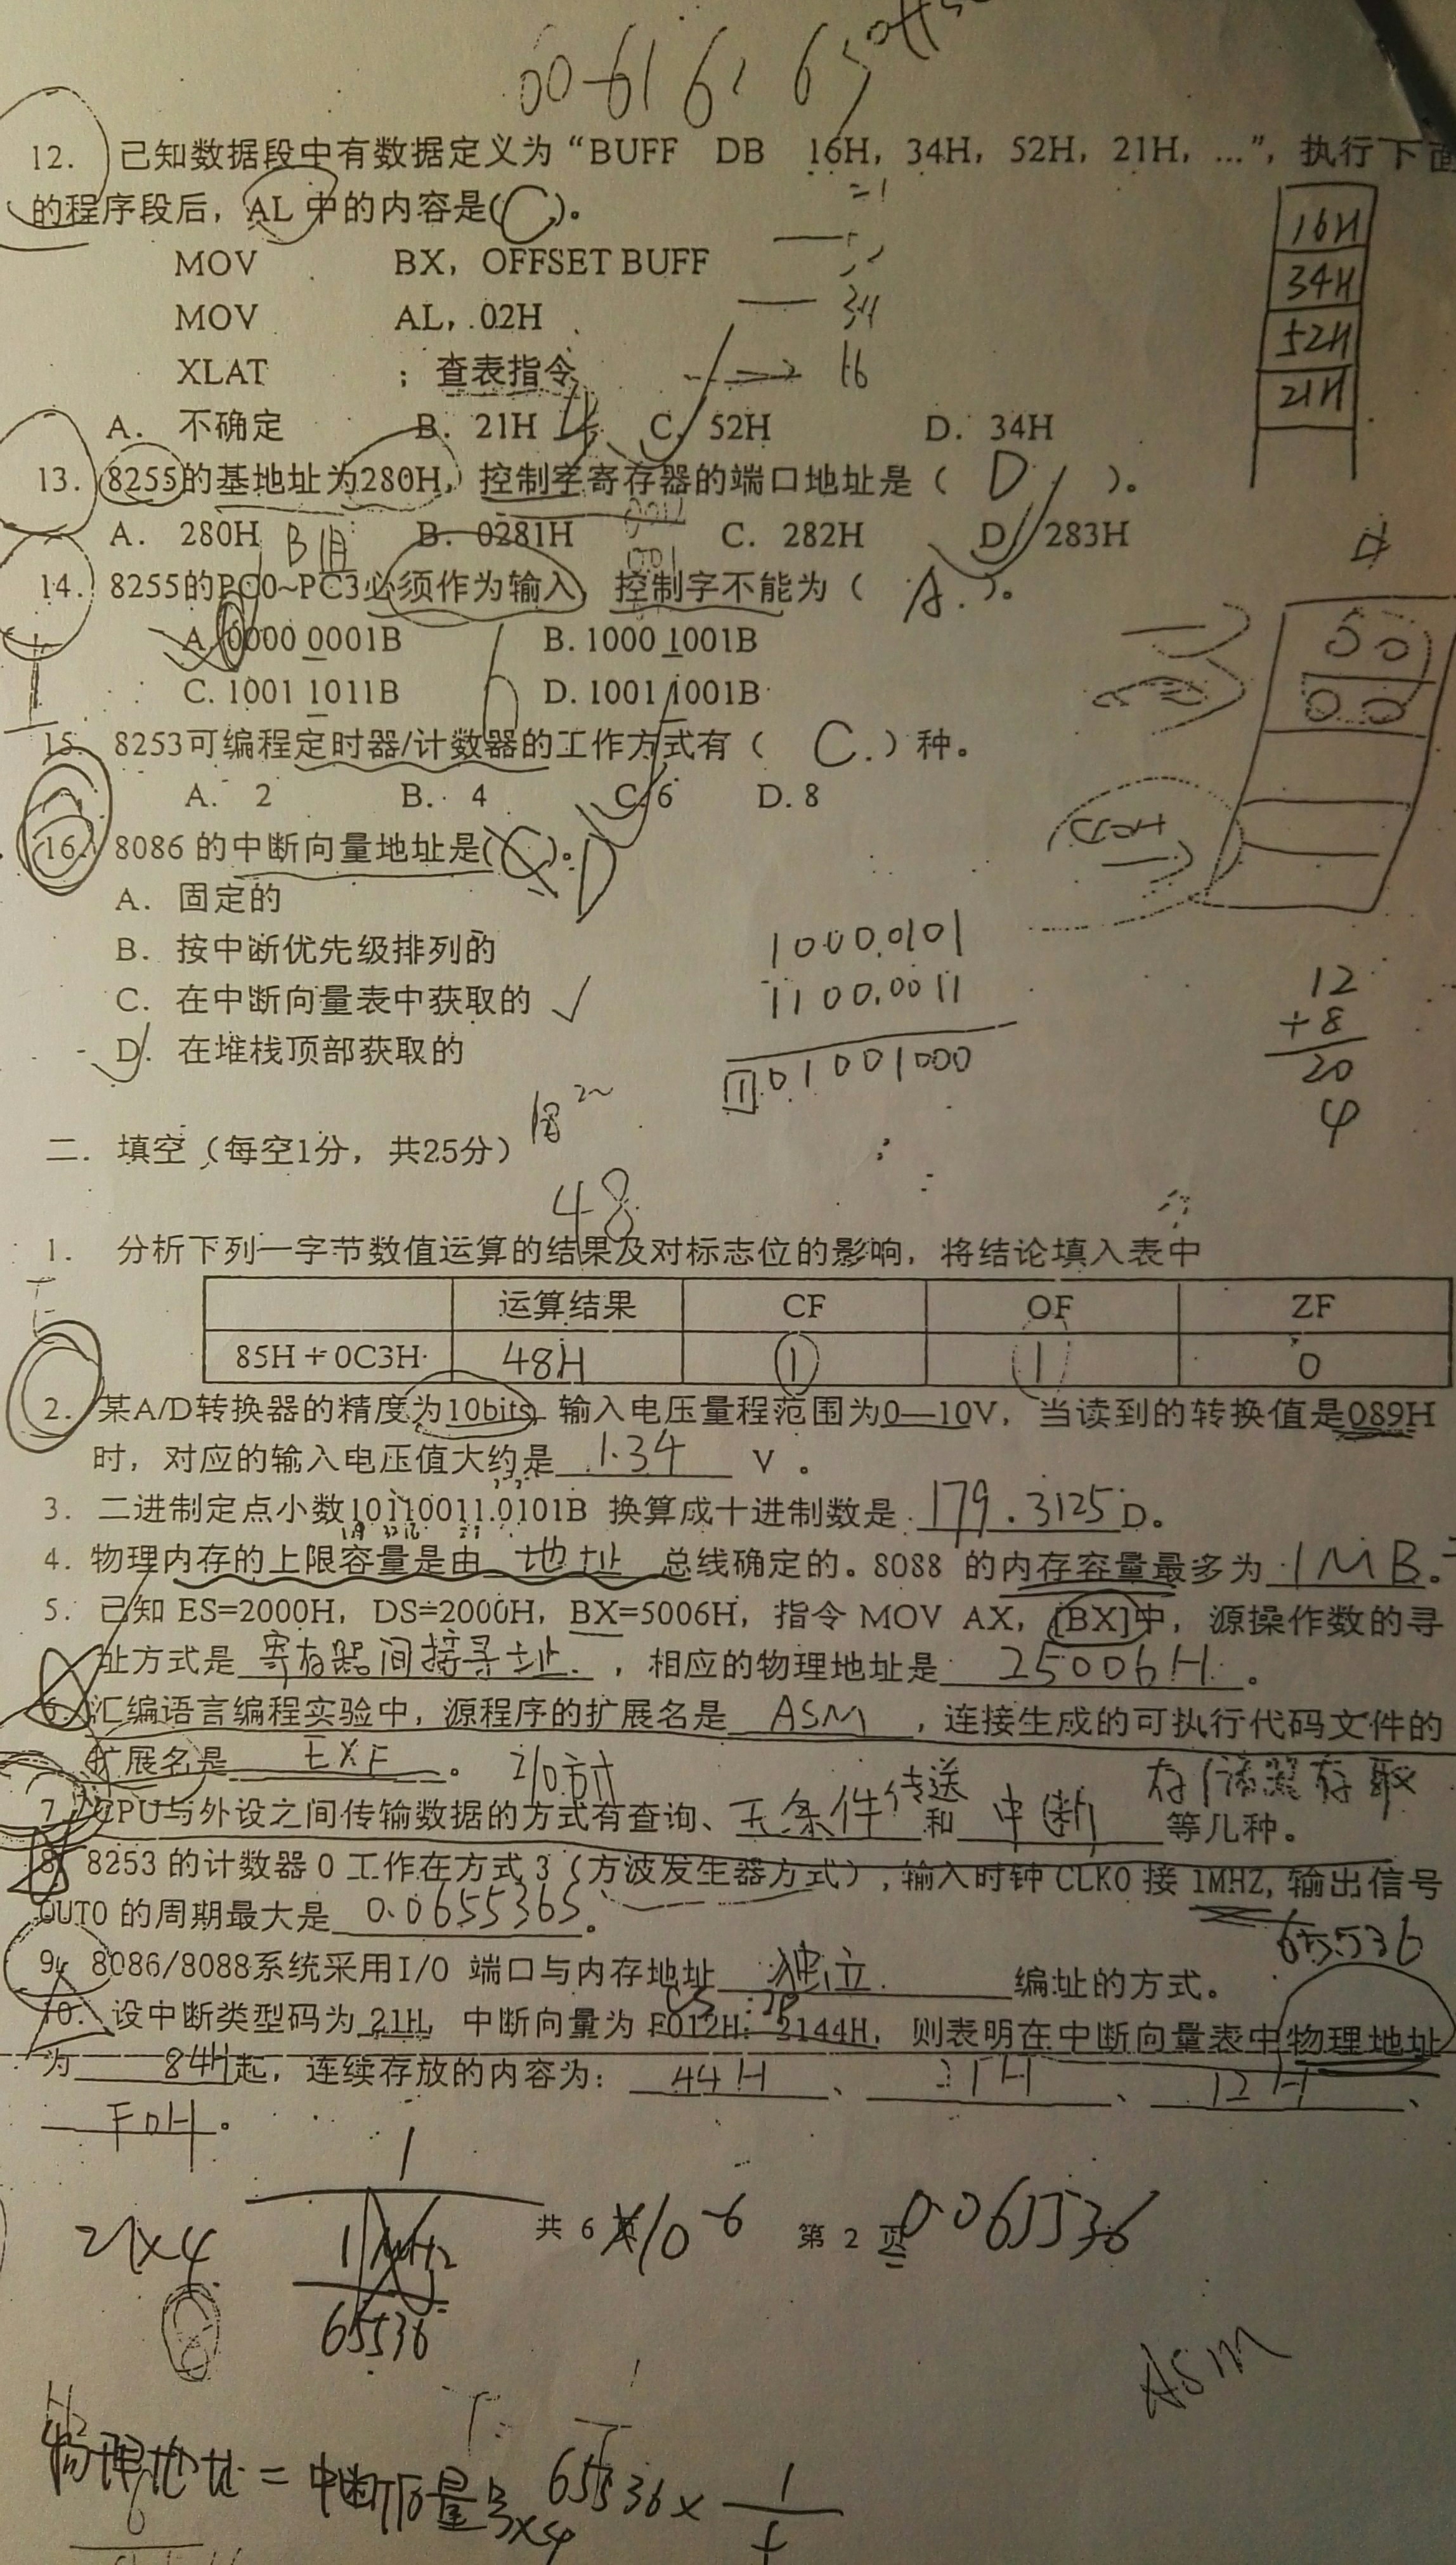 00 61 61 65
12. 已知数据段中有数据定义为“BUFF DB 16H, 34H, 52H, 21H, …”, 执行下面
的程序段后, AL 中的内容是(C)。
MOV BX, OFFSET BUFF
MOV AL, 02H
XLAT ; 查表指令
34
16
16H
34H
52H
21H
A. 不确定 B. 21H C. 52H D. 34H
13. 8255的基地址为280H, 控制字寄存器的端口地址是( D )。
A. 280H B. 0281H C. 282H D. 283H
14. 8255的PC0~PC3必须作为输入, 控制字不能为( A. )。
A. 0000 0001B B. 1000 1001B
C. 1001 1011B D. 1001 1001B
15. 8253可编程定时器/计数器的工作方式有( C. )种。
A. 2 B. 4 C. 6 D. 8
16. 8086 的中断向量地址是(C)。D
A. 固定的
B. 按中断优先级排列的
C. 在中断向量表中获取的 ✓
D. 在堆栈顶部获取的
1000,0101
1100,0011
1 01001000
12
+8
20
4
二. 填空 (每空1分, 共25分)
48
1. 分析下列一字节数值运算的结果及对标志位的影响, 将结论填入表中
运算结果 CF OF ZF
85H+0C3H 48H 1 1 0
2. 某A/D转换器的精度为10bits 输入电压量程范围为0—10V, 当读到的转换值是089H
时, 对应的输入电压值大约是 1.34 V 。
3. 二进制定点小数10110011.0101B 换算成十进制数是 179.3125 D。
4. 物理内存的上限容量是由 地址 总线确定的。8088 的内存容量最多为 1MB。
5. 已知 ES=2000H, DS=2000H, BX=5006H, 指令 MOV AX, [BX]中, 源操作数的寻
址方式是 寄存器间接寻址. , 相应的物理地址是 25006H 。
6. 汇编语言编程实验中, 源程序的扩展名是 ASM , 连接生成的可执行代码文件的
扩展名是 EXE 。 I/O方式
存储器存取
7. CPU与外设之间传输数据的方式有查询、无条件传送 和 中断 等几种。
8. 8253 的计数器 0 工作在方式 3 (方波发生器方式), 输入时钟 CLK0 接 1MHZ, 输出信号
OUT0 的周期最大是 0.065536S 。
65536
9. 8086/8088系统采用I/O 端口与内存地址 独立. 编址的方式。
CS : IP
10. 设中断类型码为 21H, 中断向量为 F012H: 2144H, 则表明在中断向量表中物理地址
为 84H 起, 连续存放的内容为: 44H 、 21H 、 12H 、
F0H 。
共 6 页 第 2 页
21×4
1
65536
×10-6
0.065536
ASM
物理地址 = 中断向量号×4
65536 × 1
f